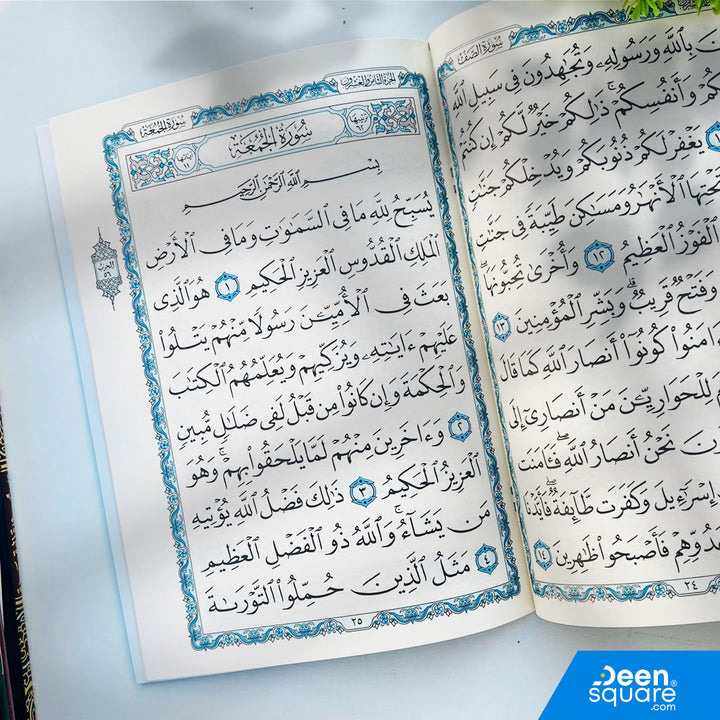 سُورَةُ الصَّفِّ
بِاللَّهِ وَرَسُولِهِۦ وَتُجَٰهِدُونَ فِى سَبِيلِ ٱللَّهِ
وَأَنفُسِكُمْ ۚ ذَٰلِكُمْ خَيْرٌ لَّكُمْ إِن كُنتُمْ
يَغْفِرْ لَكُمْ ذُنُوبَكُمْ وَيُدْخِلْكُمْ جَنَّٰتٍ
ٱلْأَنْهَٰرُ وَمَسَٰكِنَ طَيِّبَةً فِى جَنَّٰتِ
ٱلْفَوْزُ ٱلْعَظِيمُ ١٢ وَأُخْرَىٰ تُحِبُّونَهَا ۖ
وَفَتْحٌ قَرِيبٌ ۗ وَبَشِّرِ ٱلْمُؤْمِنِينَ ١٣
ءَامَنُوا۟ كُونُوٓا۟ أَنصَارَ ٱللَّهِ كَمَا قَالَ
لِلْحَوَارِيِّۦنَ مَنْ أَنصَارِىٓ إِلَى
نَحْنُ أَنصَارُ ٱللَّهِ ۖ فَـَٔامَنَت
إِسْرَٰٓءِيلَ وَكَفَرَت طَّآئِفَةٌ ۖ فَأَيَّدْنَا
فَأَصْبَحُوا۟ ظَٰهِرِينَ ١٤
٢٤
الجزء الثامن والعشرون
سورة الجمعة
ترتيبها ٦٢
سُورَةُ الجُمُعَةِ
آياتها ١١
بِسْمِ ٱللَّهِ ٱلرَّحْمَٰنِ ٱلرَّحِيمِ
يُسَبِّحُ لِلَّهِ مَا فِى ٱلسَّمَٰوَٰتِ وَمَا فِى ٱلْأَرْضِ
ٱلْمَلِكِ ٱلْقُدُّوسِ ٱلْعَزِيزِ ٱلْحَكِيمِ ١ هُوَ ٱلَّذِى
بَعَثَ فِى ٱلْأُمِّيِّۦنَ رَسُولًا مِّنْهُمْ يَتْلُوا۟
عَلَيْهِمْ ءَايَٰتِهِۦ وَيُزَكِّيهِمْ وَيُعَلِّمُهُمُ ٱلْكِتَٰبَ
وَٱلْحِكْمَةَ وَإِن كَانُوا۟ مِن قَبْلُ لَفِى ضَلَٰلٍ مُّبِينٍ
٢ وَءَاخَرِينَ مِنْهُمْ لَمَّا يَلْحَقُوا۟ بِهِمْ ۚ وَهُوَ
ٱلْعَزِيزُ ٱلْحَكِيمُ ٣ ذَٰلِكَ فَضْلُ ٱللَّهِ يُؤْتِيهِ
مَن يَشَآءُ ۚ وَٱللَّهُ ذُو ٱلْفَضْلِ ٱلْعَظِيمِ
٤ مَثَلُ ٱلَّذِينَ حُمِّلُوا۟ ٱلتَّوْرَىٰةَ
الحزب ٥٦
٢٥
Deen
square®
.com